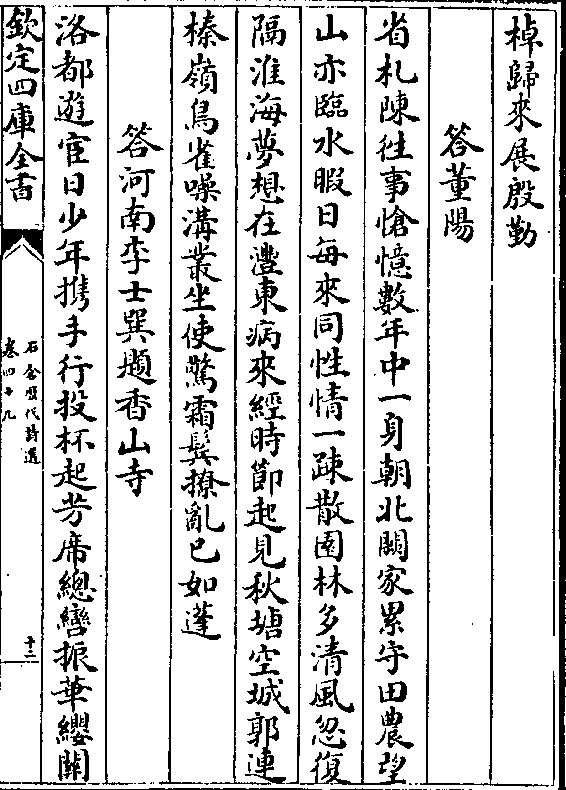 棹歸來展殷勤
答董陽
省札陳徃事愴憶數年中一身朝北闕家累守田農望
山亦臨水暇日每來同性情一疎散園林多清風忽復
隔淮海夢想在灃東病來經時節起見秋塘空城郭連
榛嶺鳥雀噪溝叢坐使驚霜鬂撩亂已如蓬
答河南李士巽題香山寺
洛都遊宦日少年携手行投杯起芳席總轡振華纓關
欽定四庫全書
石倉歷代詩選
卷四十九
十二